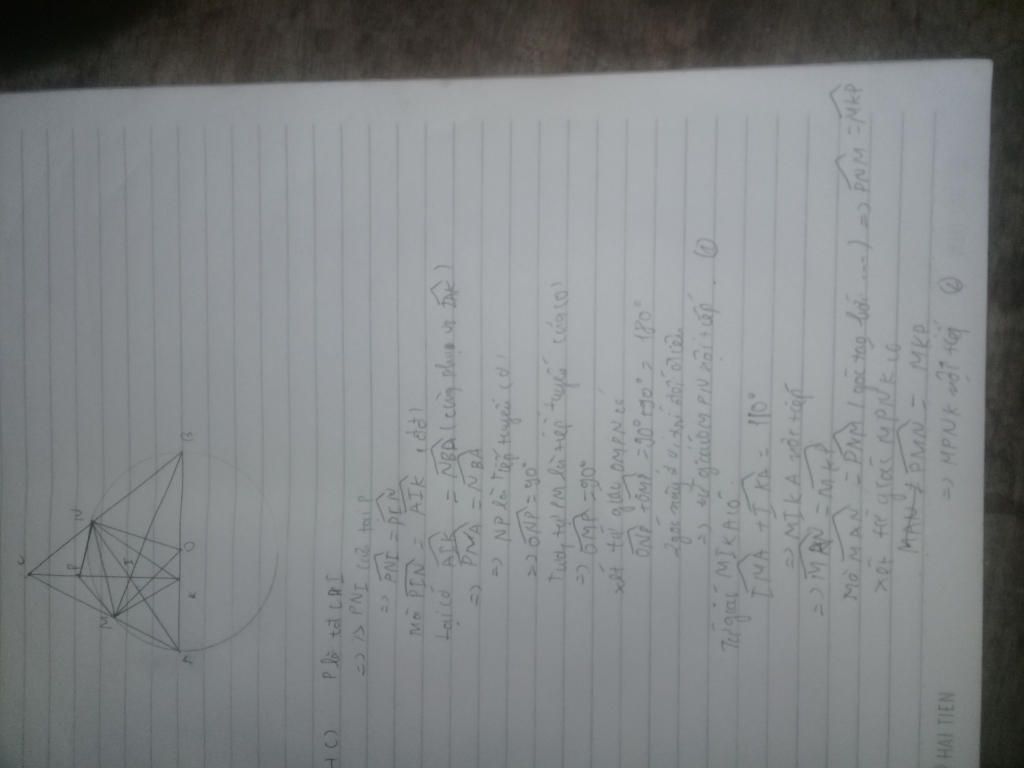 C
P
M
N
I
A
K
O
B
H C) P là tđ CHI
=> Δ PNI cân tại P
=> PNI = PIN
Mà PIN = AIK (đđ)
Lại có AIK = NBA (cùng phụ với IAK)
=> PNA = NBA
=> NP là tiếp tuyến (O)
=> ONP = 90°
Tương tự PM là tiếp tuyến của (O)
=> OMP = 90°
xét tứ giác OMPN có
ONP + OMP = 90° + 90° = 180°
2 góc này ở vị trí đối diện
=> tứ giác OMPN nội tiếp (1)
Tứ giác MIKA có
IMA + IKA = 180°
=> MIKA nội tiếp
=> MAN = MKP
Mà MAN = PNM (góc tạo bởi ....) => PNM = MKP
xét tứ giác MPNK có
PMN = MKP
=> MPNK nội tiếp (2)
HAI TIEN